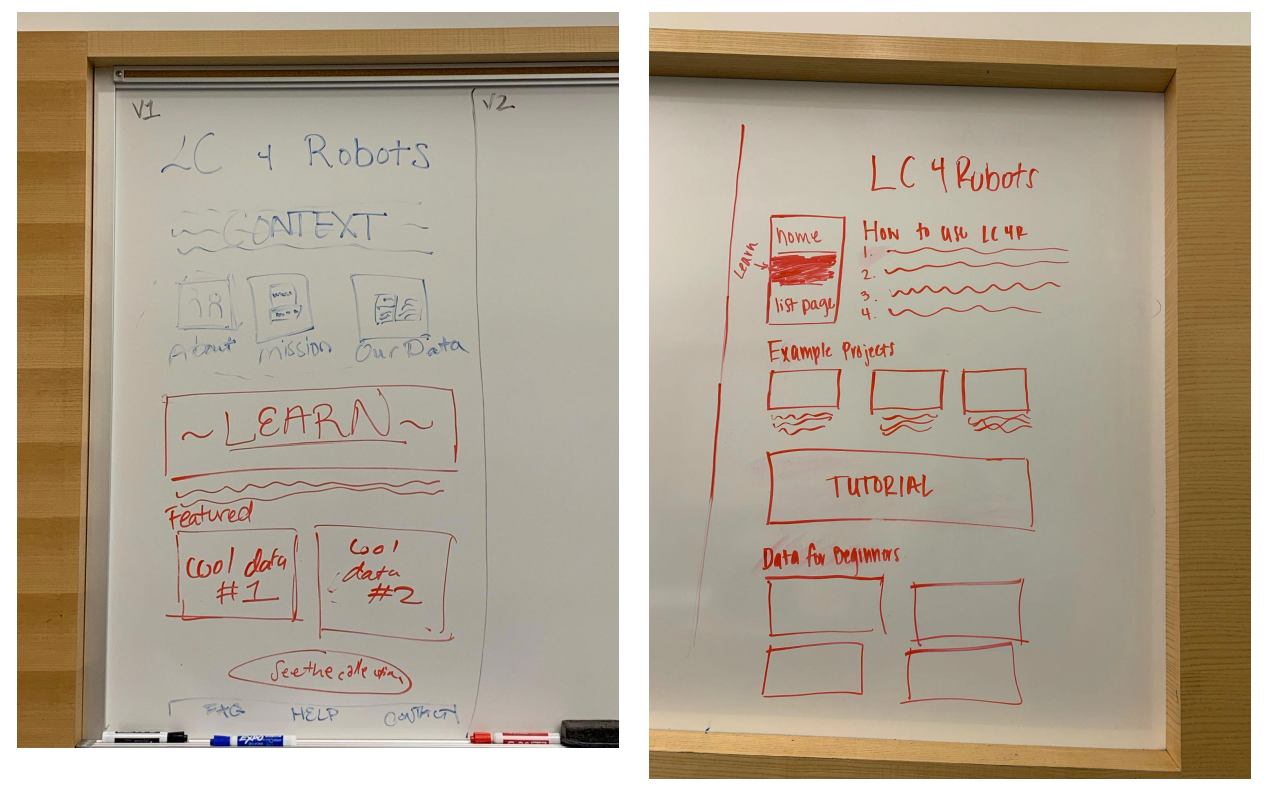 V1
V2
LC 4 Robots
CONTEXT
About
Mission
Our Data
~ LEARN ~
Featured
Cool data
#1
Cool
data
#2
See the
FAQ
HELP
CONTACT
EXPO
LC 4 Robots
Learn
home
list page
How to use LC4R
1.
2.
3.
4.
Example Projects
TUTORIAL
Data for Beginners